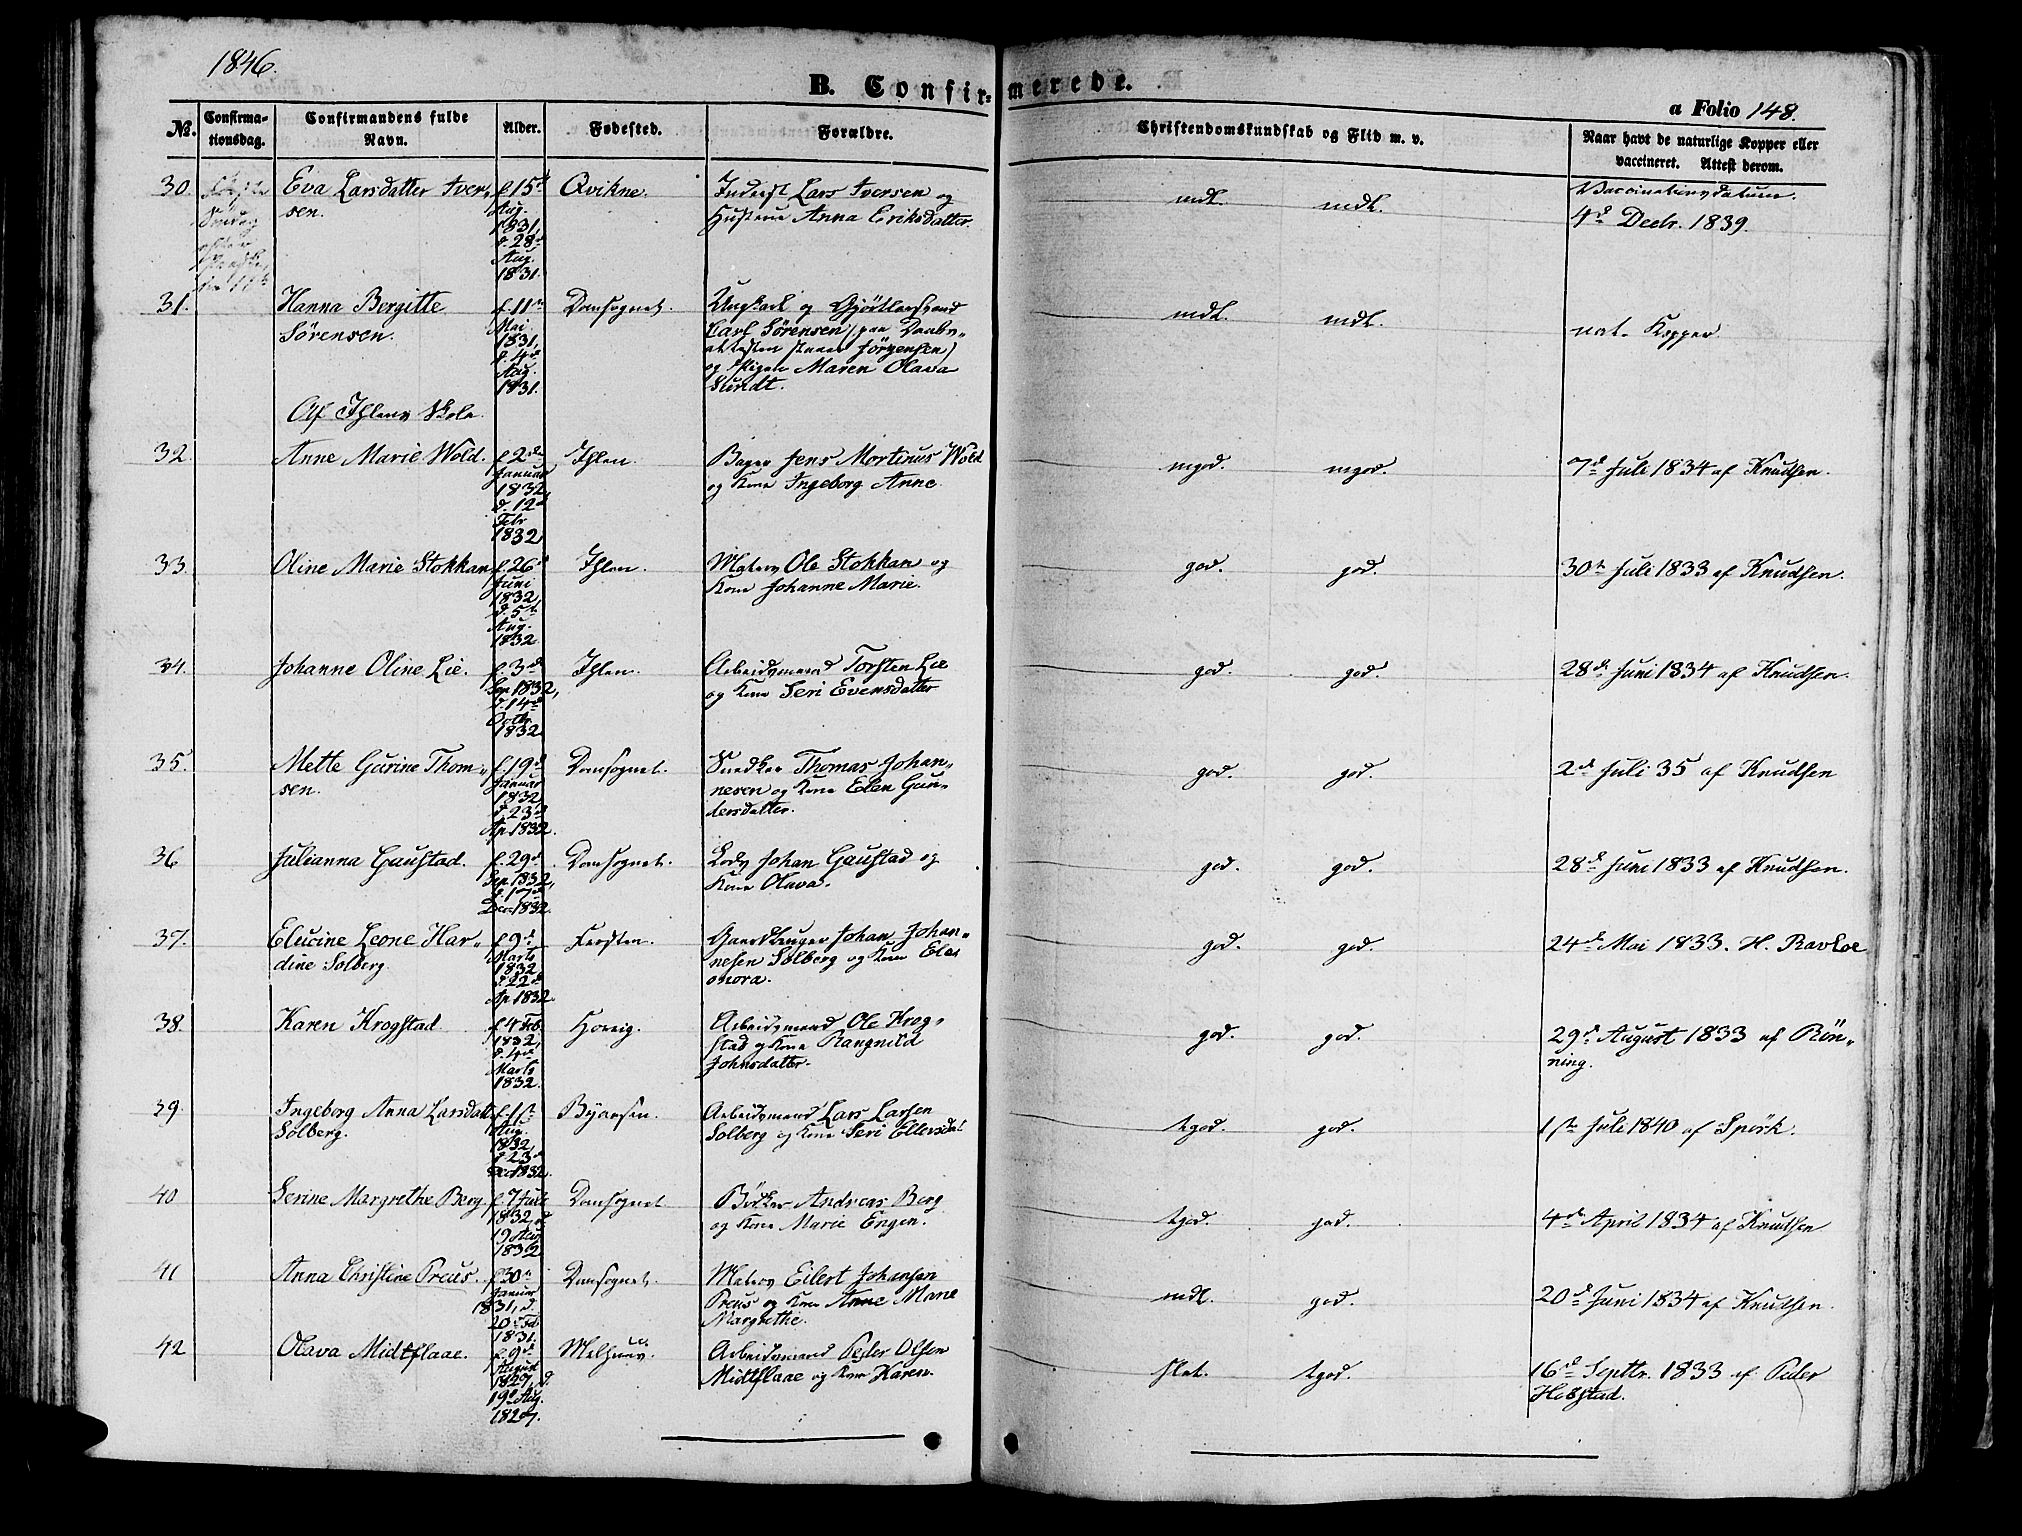 1846.
B. Confir-
merede.
a Folio 148.
№.
Confirma-
tionsdag.
Confirmandens fulde
Navn.
Alder.
Fødested.
Forældre.
Christendomskundskab og Flid m. v.
Naar havt de naturlige Kopper eller
vaccineret. Attest derom.
30. Eva Larsdatter Iver-
sen.
f. 15d
Aug.
1831,
d. 28d
Aug.
1831.
Qvikne.
Inderst Lars Iversen og
Hustrue Anna Eriksdatter.
mdl. mdl.
Vaccinationsdatum.
4d Decbr. 1839.
31. Hanna Bergitte
Sørensen.
f. 11te
Mai
1831,
d. 4d
Aug.
1831.
Domsognet.
Ungkarl og Gjørtlersvend
Carl Sørensen (paa Daabs-
attesten staaer Jörgensen)
og Pigen Maren Olava
Sundt.
mdl. mdl.
nat. Kopper.
Af Ihlens Skole.
32. Anne Marie Wold.
f. 2d
Januar
1832,
d. 12d
Febr
1832.
Ihlen.
Bager Jens Mortinus Wold
og Kone Ingeborg Anne.
mgod. mgod.
7d Juli 1834 af Knudsen.
33. Oline Marie Stokkan
f. 26d
Juni
1832,
d. 5te
Aug.
1832.
Ihlen.
Matros Ole Stokkan og
Kone Johanne Marie.
god. god.
30te Juli 1833 af Knudsen.
34. Johanne Oline Lie.
f. 3d
Sep. 1832,
d. 14d
Octbr.
1832.
Ihlen.
Arbeidsmand Torsten Lie
og Kone Seri Evensdatter
god. god.
28d Juni 1834 af Knudsen.
35. Mette Gurine Thom-
sen.
f. 19d
Januar
1832
d. 23d
Ap. 1832.
Domsognet.
Snedker Thomas Johan-
nesen og Kone Elen Gun-
dersdatter.
god. god.
2d Juli 35 af Knudsen
36 Julianna Gaustad.
f. 29d
Sep. 1832,
d. 17d
Dec. 1832.
Domsognet.
Lods Johan Gaustad og
Kone Olava.
god. god.
28d Juni 1833 af Knudsen.
37. Elucine Leone Har-
dine Solberg.
f. 9d
Marts
1832
d. 22d
Ap. 1832.
Gaardbruger Johan Johan-
nesen Solberg og Kone Eleo
nora.
god. god.
24d Mai 1833. H.
38. Karen Krogstad
f. 4 Feb.
1832,
d. 4d
Marts
1832.
Horrig.
Arbeidsmand Ole Krog-
stad og Kone Rangnild
Johnsdatter.
god. god.
29d August 1833 af Rön-
ning.
39 Ingeborg Anna Larsdatt.
Solberg.
f. 1ste
Aug.
1832,
d. 23d
Dec. 1832.
Byaasen.
Arbeidsmand Lars Larsen
Solberg og Kone Seri Ellersdat
tgod. god.
1ste Juli 1840 af Spörk.
40 Serine Margrethe Berg.
f. 7 Juli
1832, d.
19 Aug.
1832
Domsognet
Bødker Andreas Berg
og Kone Marie Engen.
tgod. god.
4de April 1834 af Knudsen
41 Anna Christine Preus.
f. 30te
Januar
1831, d.
20d Feb.
1831.
Domsognet.
Matros Eilert Johansen
Preus og Kone Anne Marie
Margrethe.
mdl. god.
20d Juni 1834 af Knudsen.
42 Olava Midtflaae.
f. 9d
August
1827, d.
19d Aug.
1827.
Melhuus.
Arbeidsmand Peder Olsen
Midtflaae og Kone Karen.
slet. tgod.
16d Septbr. 1833 af Peder
Hofstad.